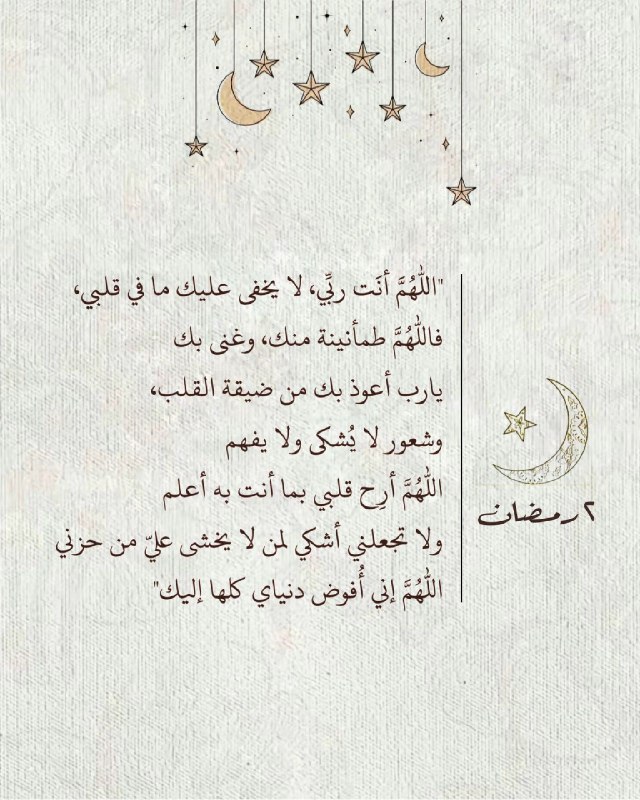 "اللّٰهُمَّ أنَت ربِّي، لا يخفى عليك ما في قلبي،
فاللّٰهُمَّ طمأنينة منك، وغنى بك
يارب أعوذ بك من ضيقة القلب،
وشعور لا يُشكى ولا يفهم
اللّٰهُمَّ أرِح قلبي بما أنت به أعلم
ولا تجعلني أشكي لمن لا يخشى عليّ من حزني
اللّٰهُمَّ إني أُفوض دنياي كلها إليك"
٢ رمضان